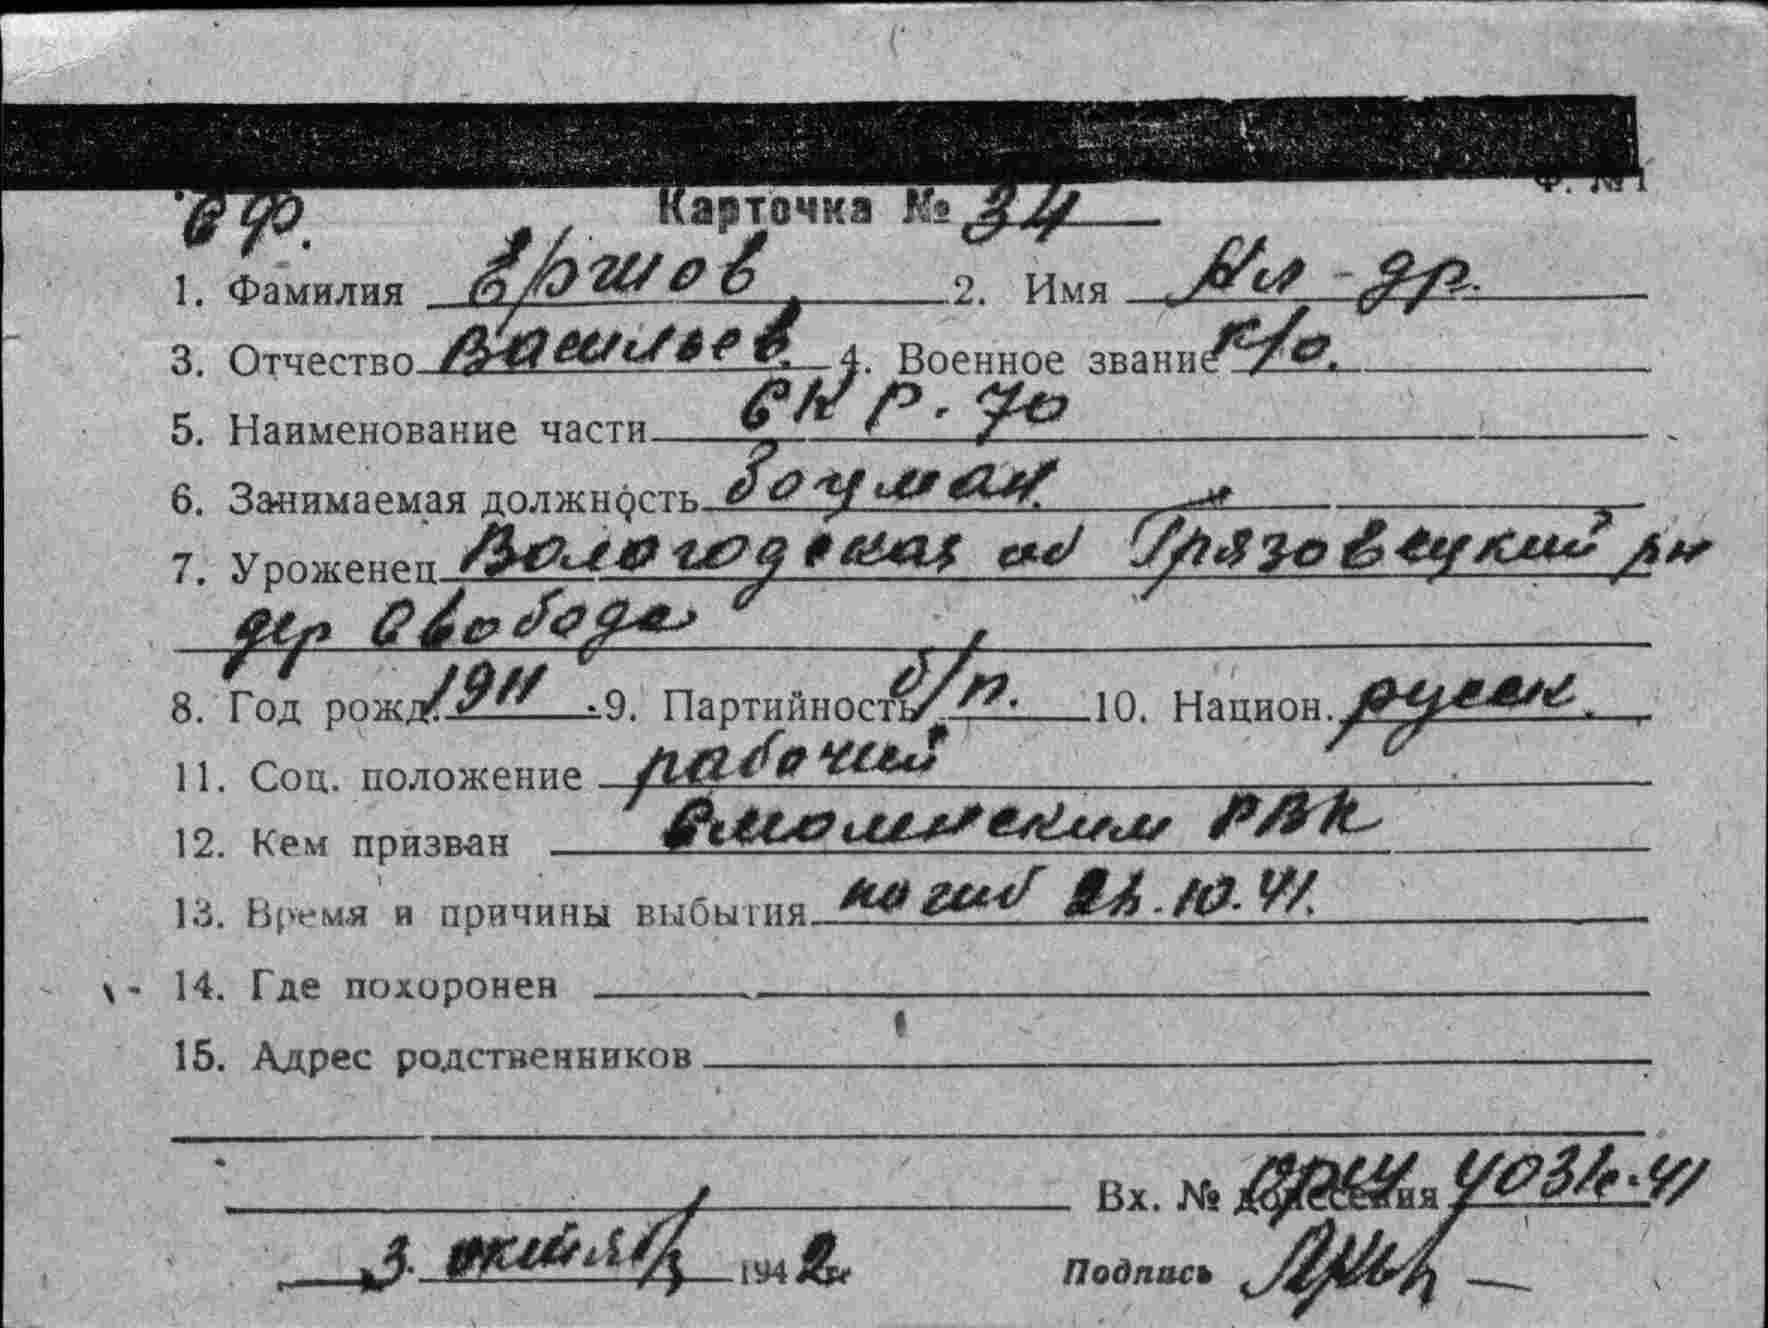 Ф. № 1
Сф. Карточка № 34
1. Фамилия Ершов 2. Имя Ал-др.
3. Отчество Васильев. 4. Военное звание к/о.
5. Наименование части СКР. 70
6. Занимаемая должность боцман.
7. Уроженец Вологодская об Грязовецкий рн
дер Свобода
8. Год рожд. 1911 9. Партийность б/п. 10. Национ. русск.
11. Соц. положение рабочий
12. Кем призван Смольнинским РВК
13. Время и причины выбытия погиб .10.41.
14. Где похоронен
15. Адрес родственников
Вх. № донесения
3. октября 1942 г.
Подпись